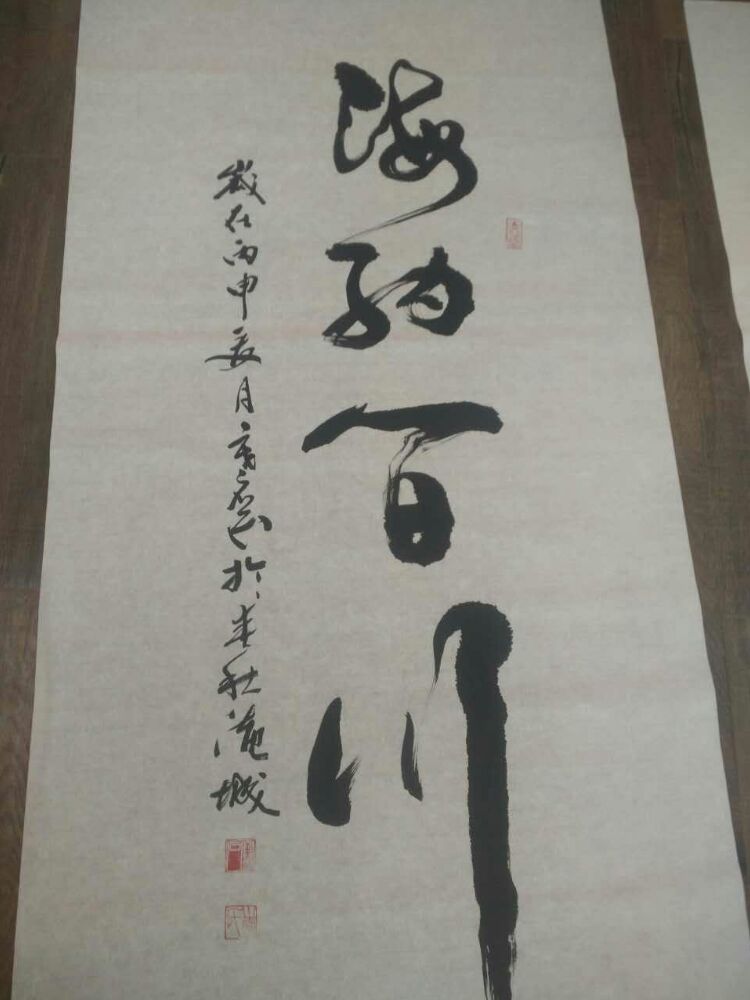 海纳百川
岁在丙申夏月 于春秋淹城